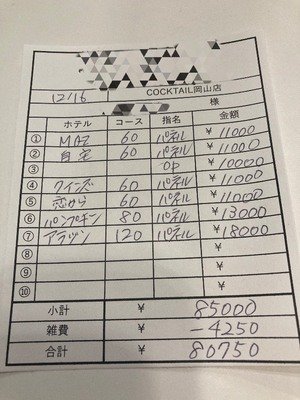 COCKTAIL岡山店
12/16 様
ホテル コース 指名 金額
① MAZ 60 パネル ¥11000
② 自宅 60 パネル ¥11000
③ OP ¥10000
④ クイーンズ 60 パネル ¥11000
⑤ 恋から 60 パネル ¥11000
⑥ パンプキン 80 パネル ¥13000
⑦ アラジン 120 パネル ¥18000
⑧ ¥
⑨ ¥
⑩ ¥
小計 ¥ 85000
雑費 ¥ -4250
合計 ¥ 80750